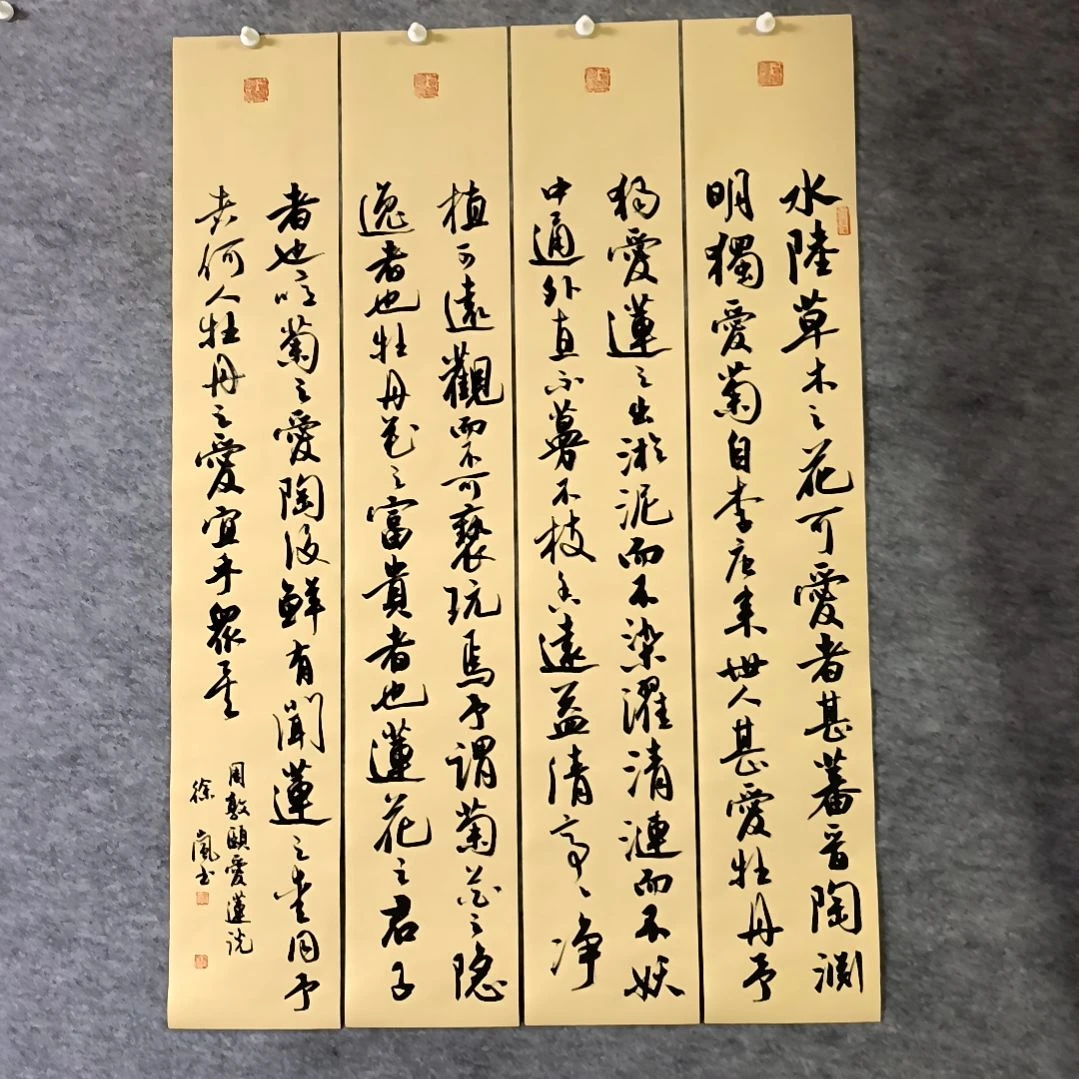 水陸草木之花可愛者甚蕃晋陶渊
明獨愛菊自李唐来世人甚愛牡丹予
独愛蓮之出淤泥而不染濯清漣而不妖
中通外直不蔓不枝香遠益清亭亭净
植可遠觀而不可褻玩焉予謂菊花之隐
逸者也牡丹花之富貴者也蓮花之君子
者也噫菊之愛陶後鮮有聞蓮之愛同予
者何人牡丹之愛宜乎眾矣
周敦頤愛蓮説
徐嵐书